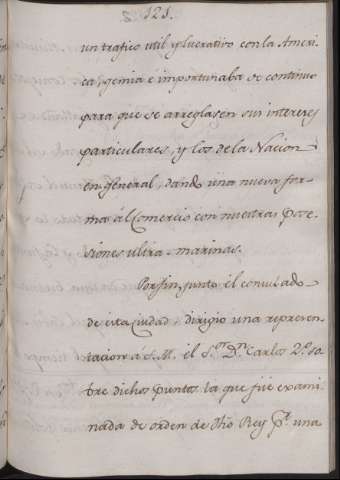 121.
un trafico util y lucrativo con la Ameri-
ca, gemia é importunaba de continuo
para que se arreglasen sus intereses
particulares, y los de la Nacion
en general, dando una nueva for-
ma ál Comercio con nuestras pose-
siones ultra-marinas.
Por fin, junto él consulado
de esta Ciudad, dirigio una represen-
tacion á S. M. él S.or D.n Carlos 2.º so-
bre dichos puntos la que fué exami-
nada de orden de dho Rey p.r una